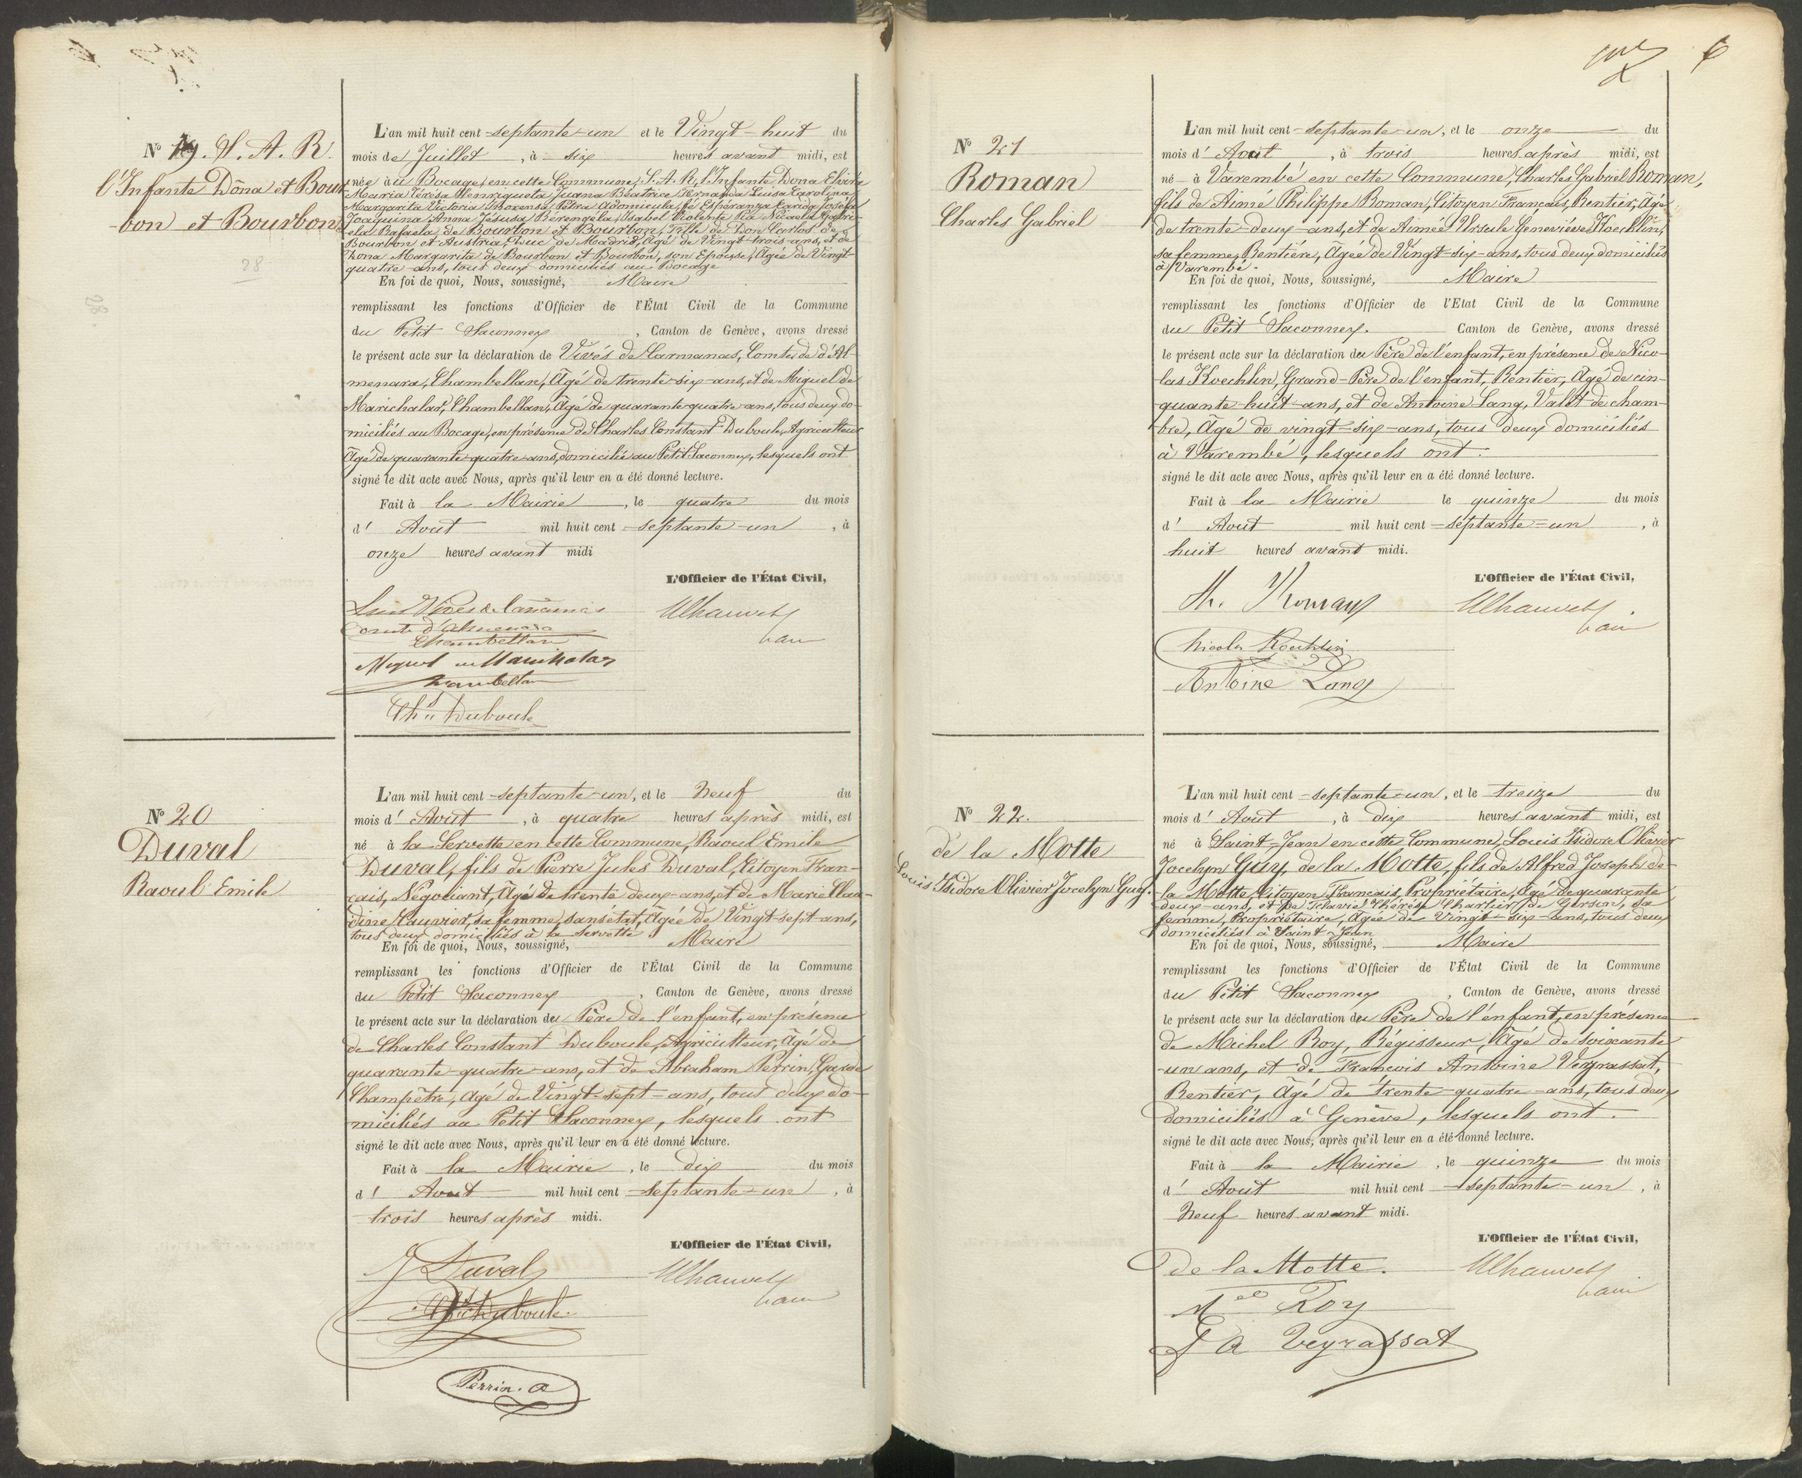 Nº 19. S. A. R.
l'Infante Dôna et Bour-
bon et Bourbon
28
L'an mil huit cent septante-un et le Vingt-huit du
mois de Juillet, à six heures avant midi, est
née à au Bocage, en cette Commune, S. A. R. l'Infante Dona Elvira
Maria Térésa Henriqueta Juana Béatrix Fernanda Luisa Carolina
Margarita Victoria Florensa Petra Adomicula fé Esperanza Carida Josefa
Joaquina Anna Jésusa Bérengela, Isabel Violente Pia Nicaela Gabri-
ela Rafaela, de Bourbon et Bourbon, fille de Don Carlos de
Bourbon et Austria Duc de Madrid, Agé de Vingt-trois ans, et de
Dona Margarita de Bourbon et Bourbon, son Epouse, Agée de Vingt
quatre ans, tous deux domiciliés au Bocage
En foi de quoi, Nous, soussigné, Maire
remplissant les fonctions d'Officier de l'État Civil de la Commune
du Petit Saconnex, Canton de Genève, avons dressé
le présent acte sur la déclaration de Vivés de Carmanas, Comte de d'Al-
menara, Chambellan, Agé de trente-six ans, et de Miguel de
Marichalar, Chambellan, Agé de quarante quatre ans, tous deux do-
miciliés au Bocage, en présence de Charles Constant Duboule, Agriculteur
Agé de quarante quatre ans, domicilié au Petit Saconnex, lesquels ont
signé le dit acte avec Nous, après qu'il leur en a été donné lecture.
Fait à la Mairie, le quatre du mois
d' Aout mil huit cent septante-un, à
onze heures avant midi
L'Officier de l'État Civil,
Luis Vives de
Comte d'Almenara
Chambellan
Miguel de Marichalar
Chambellan
Chs Duboule
Nº 20
Duval
Raoul Emile
L'an mil huit cent septante-un, et le neuf du
mois d' Aout, à quatre heures après midi, est
né à la Servette en cette Commune, Raoul Emile
Duval, fils de Pierre Jules Duval, Citoyen Fran-
çais, Négociant, Agé de trente deux ans, et de Marie Clau-
dine Lauvier, sa femme, sans état, Agée de Vingt-sept ans,
tous deux domiciliés à la Servette
En foi de quoi, Nous, soussigné, Maire
remplissant les fonctions d'Officier de l'État Civil de la Commune
du Petit Saconnex, Canton de Genève, avons dressé
le présent acte sur la déclaration du Père de l'enfant, en présence
de Charles Constant Duboule, Agriculteur, Agé de
quarante-quatre ans, et de Abraham Perrin, Garde
Champêtre, Agé de Vingt-sept ans, tous deux do-
miciliés au Petit Saconnex, lesquels ont
signé le dit acte avec Nous, après qu'il leur en a été donné lecture.
Fait à la Mairie, le dix du mois
d' Aout mil huit cent septante-un, à
trois heures après midi.
L'Officier de l'État Civil,
J Duval
Chs Duboule
Perrin. a
6
Nº 21
Roman
Charles Gabriel
L'an mil huit cent septante-un, et le onze du
mois d' Aout, à trois heures après midi, est
né à Varembé en cette Commune, Charles Gabriel Roman,
fils de Aimé Philippe Roman, Citoyen Français, Rentier, Agé
de trente-deux ans, et de Aimée Ursule Geneviève Koechlin,
sa femme, Rentière, Agée de Vingt-six ans, tous deux domiciliés
à Varembé.
En foi de quoi, Nous, soussigné, Maire
remplissant les fonctions d'Officier de l'Etat Civil de la Commune
du Petit Saconnex. Canton de Genève, avons dressé
le présent acte sur la déclaration du Père de l'enfant, en présence de Nico-
las Koechlin, Grand-Père de l'enfant, Rentier, Agé de cin-
quante-huit ans, et de Antoine Lang, Valet de cham-
bre, Agé de vingt-six ans, tous deux domiciliés
à Varembé, lesquels ont
signé le dit acte avec Nous, après qu'il leur en a été donné lecture.
Fait à la Mairie le quinze du mois
d' Aout mil huit cent septante-un, à
huit heures avant midi.
L'Officier de l'État Civil,
Ph. Roman
Nicolas Koechlin
Antoine Lang
Nº 22.
de la Motte
Louis Isidore Olivier Jocelyn Guy.
L'an mil huit cent septante-un, et le treize du
mois d' Aout, à dix heures avant midi, est
né à Saint-Jean en cette Commune, Louis Isidore Olivier
Jocelyn Guy, de la Motte, fils de Alfred Joseph de
la Motte, Citoyen Français, Propriétaire, Agé de quarante
deux ans, et de Flavie Thérèse Chartier de Gerson, sa
femme, Propriétaire, Agée de Vingt-six ans, tous deux
domiciliés à Saint-Jean
En foi de quoi, Nous, soussigné, Maire
remplissant les fonctions d'Officier de l'État Civil de la Commune
du Petit Saconnex, Canton de Genève, avons dressé
le présent acte sur la déclaration du Père de l'enfant, en présence
de Michel Roy, Régisseur, Agé de soixante
un ans, et de François Antoine Veyrassat,
Rentier, Agé de trente-quatre ans, tous deux
domiciliés à Genève, lesquels ont
signé le dit acte avec Nous, après qu'il leur en a été donné lecture.
Fait à la Mairie, le quinze du mois
d' Aout mil huit cent septante-un, à
neuf heures avant midi.
L'Officier de l'État Civil,
de la Motte.
Mel Roy
F A Veyrassat